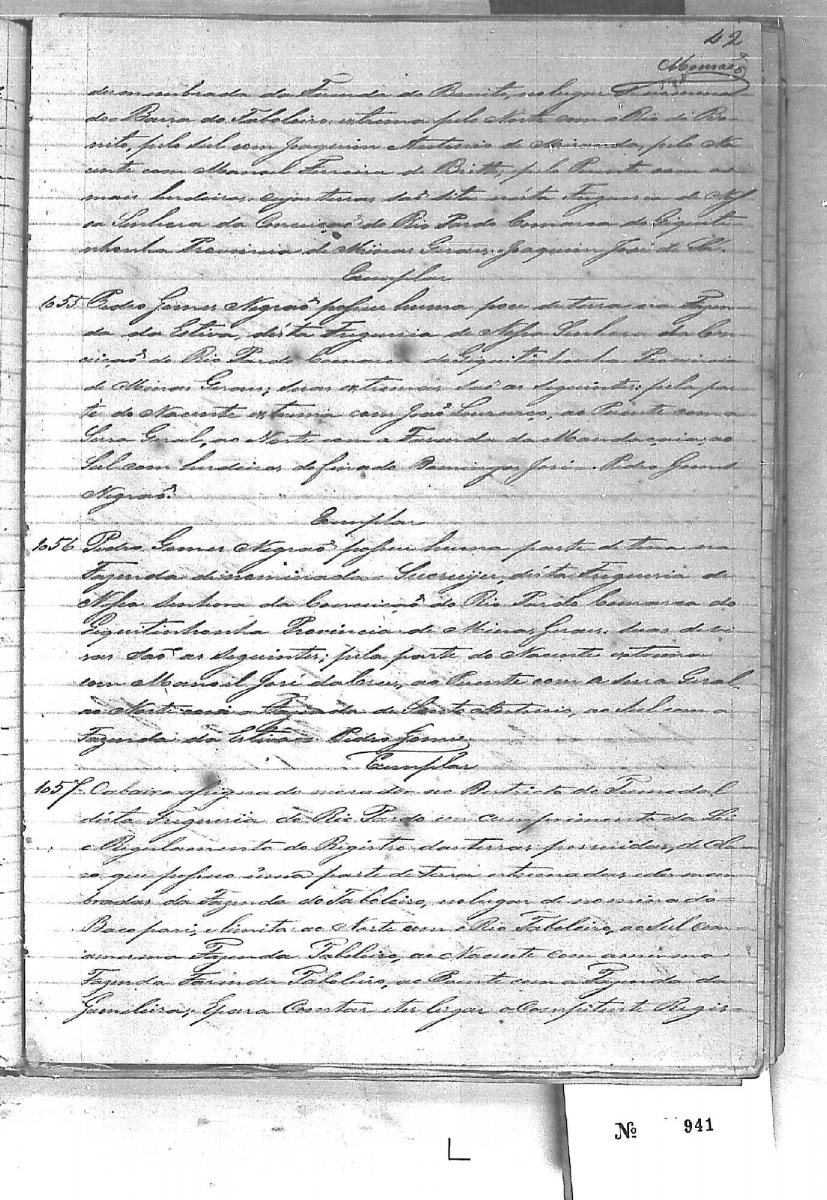 42
desmembrada da Fazenda do Bonito, no lugar denomina-
do Barra do Taboleiro, extrema pelo Norte com o Rio do Bo-
nito, pelo Sul com Joaquim Antonio de Miranda, pelo Na-
cente com Manoel Ferreira de Britto, pelo Puente com os
mais herdeiros, cujas terras são sitas nésta Freguesia de Nos
sa Senhora da Conceição do Rio Pardo Comarca do Giquiti-
nhonha Provincia de Minas Geraes. Joaquim José de
Exemplar
1055 Pedro Gomes Negraõ possue huma parte de terra na Fazen-
da da Estiva, désta Freguesia de Nossa Senhora da Con-
ceiçaõ do Rio Pardo Comarca do Giquitinhonha Provincia
de Minas Geraes; suas extremas saõ as seguintes; pela par-
te do Nacente extrema com Joaõ Lourenço, ao Puente com a
Serra Geral, ao Norte com a Fazenda da Mandaçaia, ao
Sul com herdeiros do finado Domingos José. Pedro Gomes
Negraõ.
Exemplar
1056 Pedro Gomes Negraõ possue huma parte de terra na
Fazenda denominada Sucruijú, désta Freguesia de
Nossa Senhora da Conceiçaõ do Rio Pardo Comarca do
Giquitinhonha Provincia de Minas Geraes. suas devi-
zas saõ as seguintes; pela parte do Nacente extrema
com Manoel José da Cruz, ao Puente com a Serra Geral,
ao Norte com a Fazenda de Santo Antonio, ao Sul com a
Fazenda da Estiva. Pedro Gomes
Exemplar
1057 O abaixo assignado morador no Destricto do Tremedal
désta Freguesia do Rio Pardo em cumprimento da Lei
e Regulamento do Registro das terras possuidas, decla-
ro que possuo uma parte de terra extremada e desmem-
bradas da Fazenda do Taboleiro, no lugar denominado
Bacopari, e limita ao Norte com o Rio Taboleiro, ao Sul com
a mesma Fazenda Taboleiro, ao Nacente com a mesma
Fazenda Taboleiro, ao Puente com a Fazenda da
Gamelleira; E para Constar e ter lugar o Competente Regis-
Nº 941